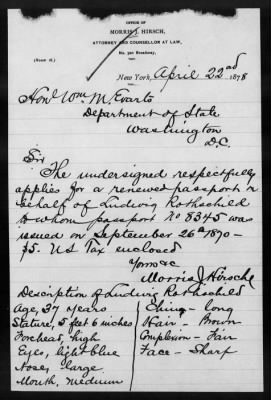 OFFICE OF
MORRIS J. HIRSCH,
ATTORNEY AND COUNSELLOR AT LAW,
No. 320 Broadway,
(Room 8.)
New York, April 22nd 1878
Hon. Wm. M. Evarts
Department of State
Washington
D.C.
Sir
The undersigned respectfully
applies for a renewed passport in
behalf of Ludwig Rothschild
to whom passport No 8345 was
issued on September 26th 1870—
$5. US Tax enclosed
Yours &c
Morris J Hirsch
Description of Ludwig Rothschild
Age, 37 years
Stature, 5 feet 6 inches
Forehead, high
Eyes, light blue
Nose, large
Mouth, medium
Chin - long
Hair - Brown
Complexion - Fair
Face - Sharp